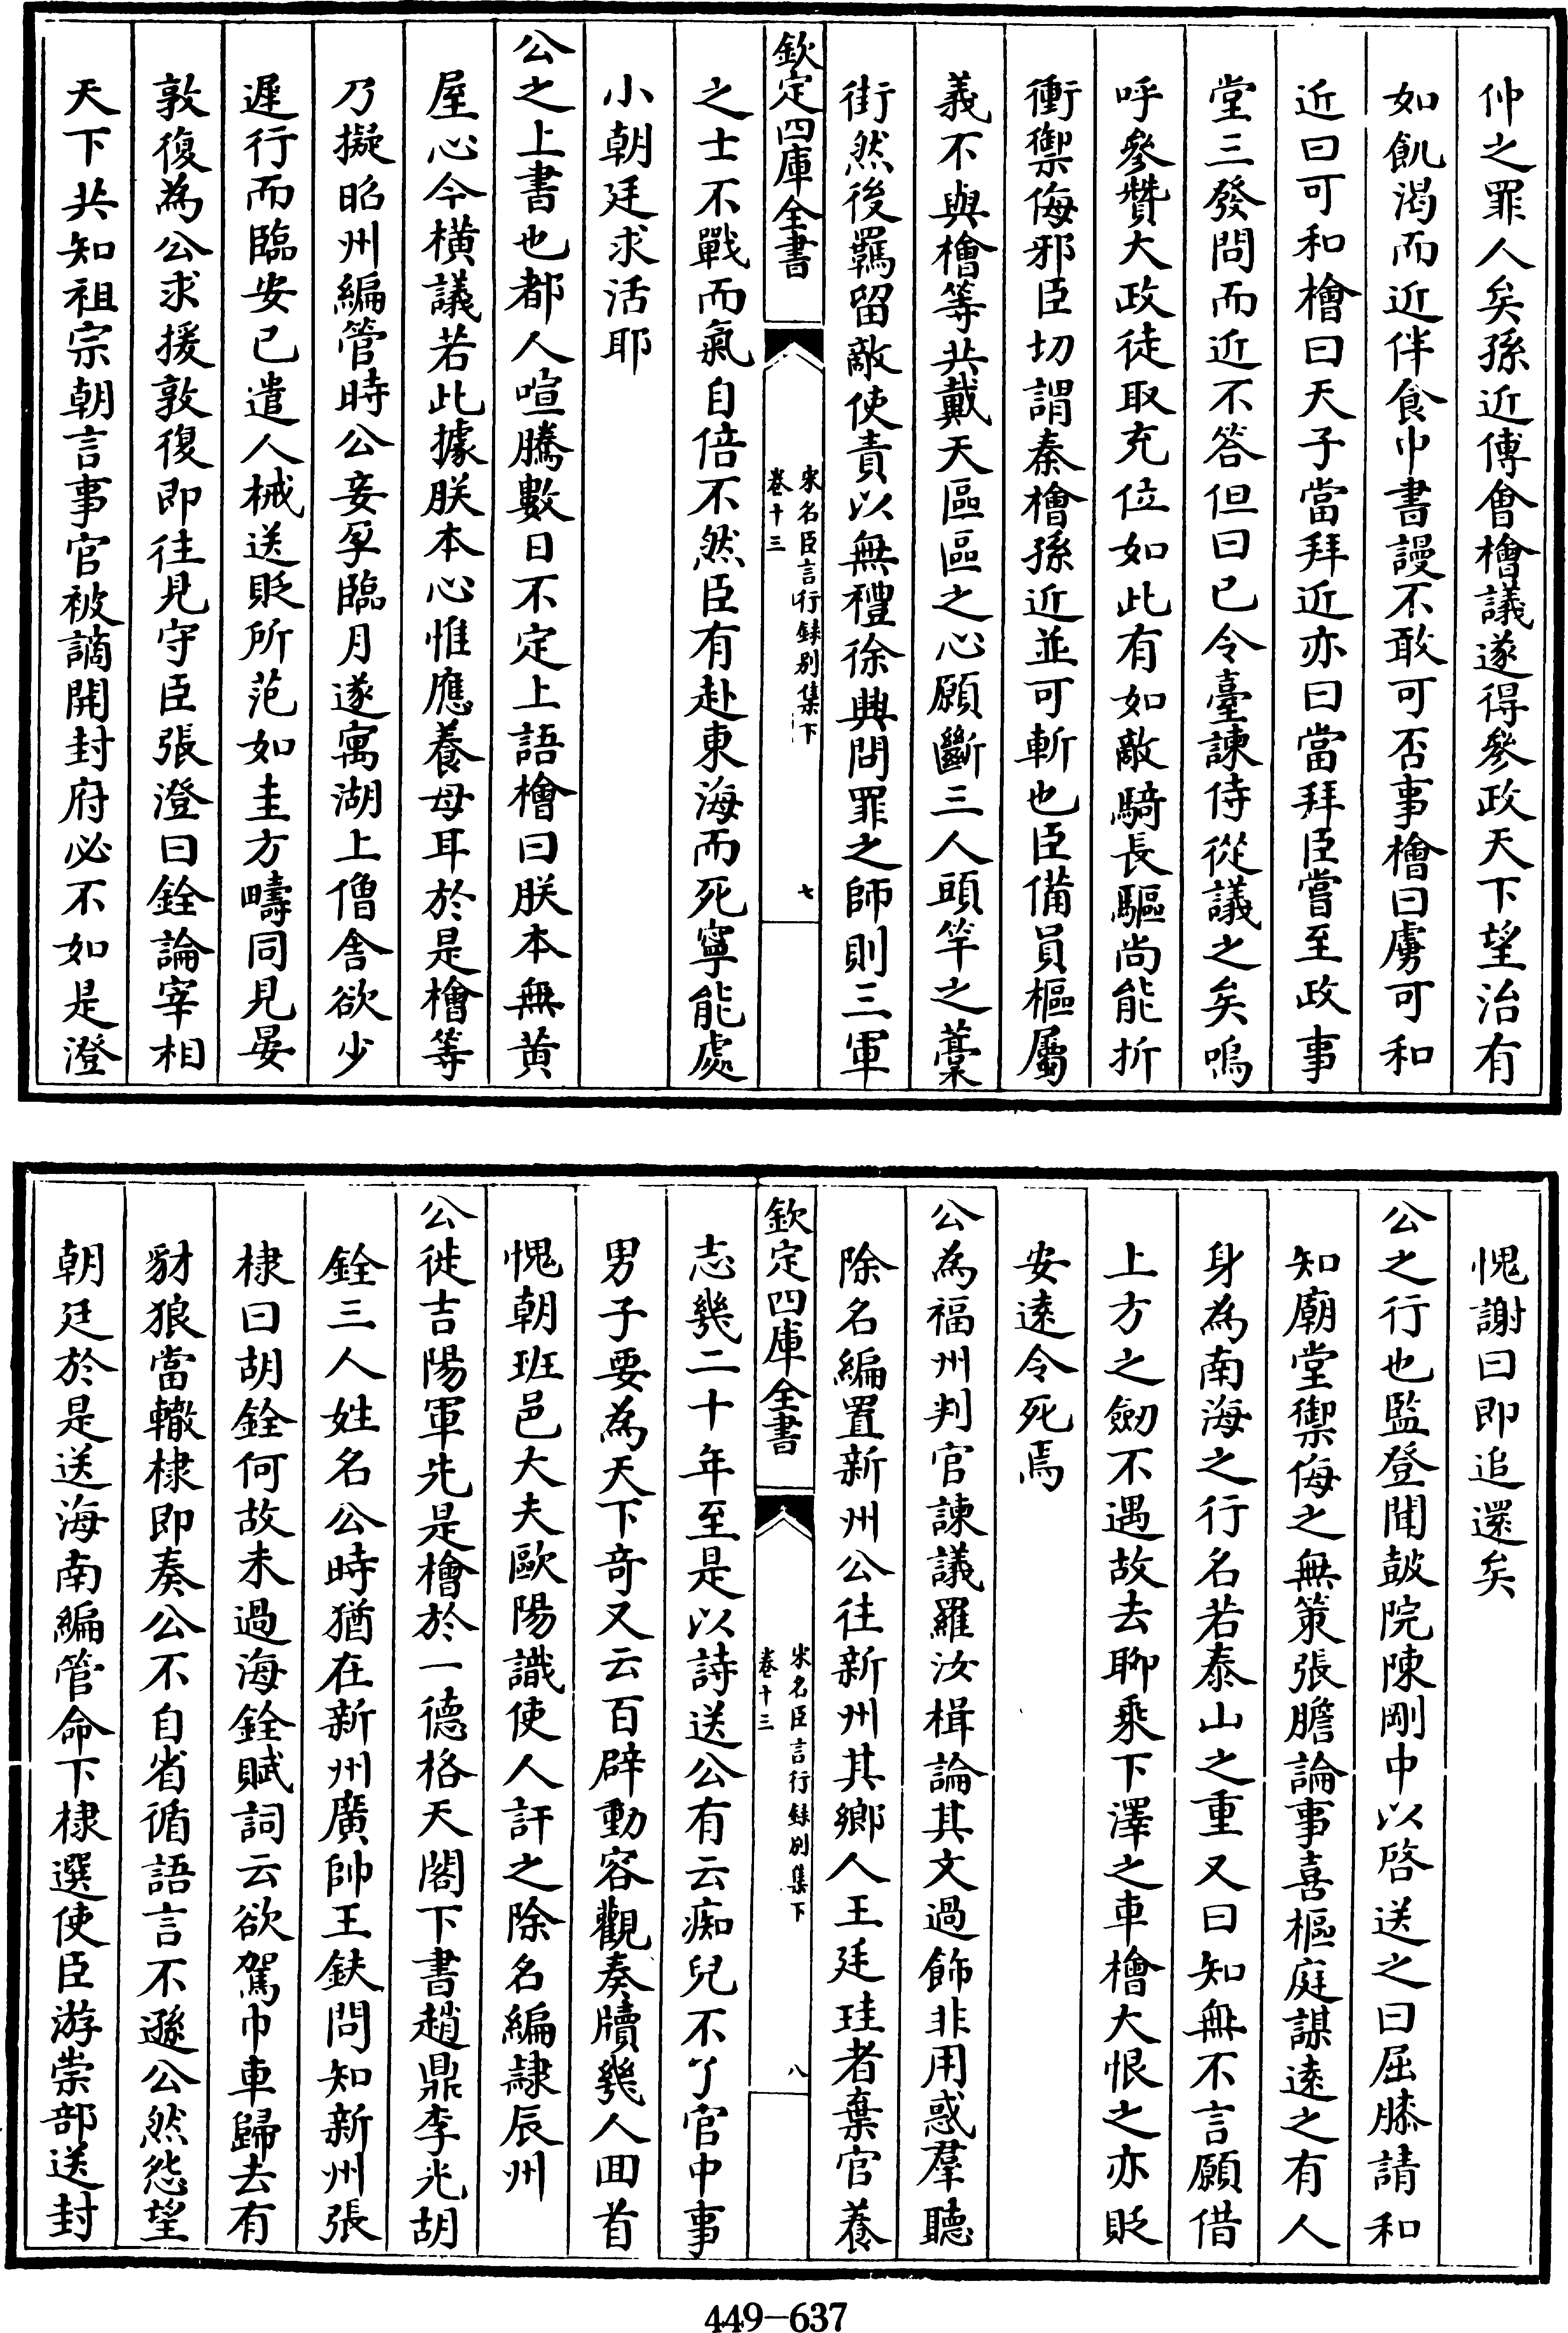 仲之罪人矣孫近傅會檜議遂得參政天下望治有
如飢渴而近伴食中書謾不敢可否事檜曰虜可和
近曰可和檜曰天子當拜近亦曰當拜臣嘗至政事
堂三發問而近不答但曰已令臺諫侍從議之矣嗚
呼參贊大政徒取充位如此有如敵騎長驅尚能折
衝禦侮邪臣切謂秦檜孫近並可斬也臣備員樞屬
義不與檜等共戴天區區之心願斷三人頭竿之藁
街然後羈留敵使責以無禮徐興問罪之師則三軍
欽定四庫全書
宋名臣言行録别集下
卷十三
七
之士不戰而氣自倍不然臣有赴東海而死寧能處
小朝廷求活耶
公之上書也都人喧騰數日不定上語檜曰朕本無黄
屋心今橫議若此據朕本心惟應養母耳於是檜等
乃擬昭州編管時公妾孕臨月遂寓湖上僧舍欲少
遲行而臨安已遣人械送貶所范如圭方疇同見晏
敦復為公求援敦復即往見守臣張澄曰銓論宰相
天下共知祖宗朝言事官被謫開封府必不如是澄
愧謝曰即追還矣
公之行也監登聞鼓院陳剛中以啓送之曰屈膝請和
知廟堂禦侮之無策張膽論事喜樞庭謀遠之有人
身為南海之行名若泰山之重又曰知無不言願借
上方之劒不遇故去聊乘下澤之車檜大恨之亦貶
安遠令死焉
公為福州判官諫議羅汝楫論其文過飾非用惑羣聽
除名編置新州公往新州其鄉人王廷珪者棄官養
欽定四庫全書
宋名臣言行録别集下
卷十三
八
志幾二十年至是以詩送公有云痴兒不了官中事
男子要為天下奇又云百辟動容觀奏牘幾人囬首
愧朝班邑大夫歐陽識使人訐之除名編隷辰州
公徙吉陽軍先是檜於一德格天閣下書趙鼎李光胡
銓三人姓名公時猶在新州廣帥王鈇問知新州張
棣曰胡銓何故未過海銓賦詞云欲駕巾車歸去有
豺狼當轍棣即奏公不自省循語言不遜公然怨望
朝廷於是送海南編管命下棣選使臣游崇部送封
449-637